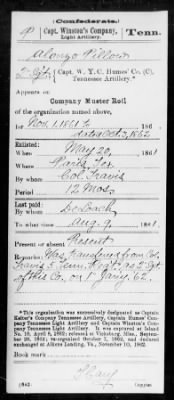 (Confederate.)
P Capt. Winston's Company, Light Artillery. Tenn.
Alonzo Pillow
2 Sgt, Capt. W. Y. C. Humes' Co. (C), Tennessee Artillery.*
Appears on
Company Muster Roll
of the organization named above,
for Nov. 1. 1861 to 186
dated Oct. 3, 1862
Enlisted:
When May 20, 1861
Where Paris, Ten.
By whom Col. Travis
Period 12 Mos.
Last paid:
By whom
To what time Aug. 9, 1861
Present or absent Present
Remarks: Was transferred from Col.
Travis 5 Tenn. Regt. as 2 Sgt.
of this Co. on 1 Jany. 62.
*This organization was successively designated as Captain
Company Tennessee Artillery, Captain Humes' Company
Tennessee Light Artillery and Captain Winston's Company
Tennessee Light Artillery. It was captured at Island
No. 10, April 8, 1862; released at Vicksburg, Miss., September
1862; reorganized October 1, 1862, and declared
exchanged at Aikens Landing, Va., November 10, 1862.
Book mark:
(642)
Copyist.